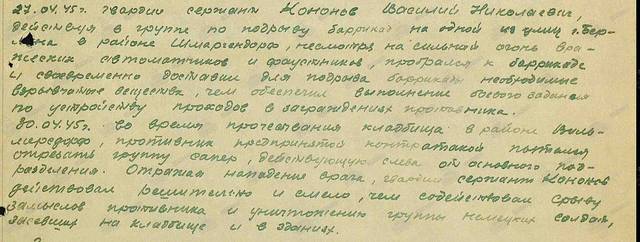 27.04.45г. гвардии сержант Кононов Василий Николаевич,
действуя в группе по подрыву баррикад на одной из улиц г.Бер-
лина в районе Шмаргендорф, несмотря на сильный огонь вра-
жеских автоматчиков и фаустников, пробрался к баррикаде
и своевременно доставил для подрыва баррикады необходимые
взрывчатые вещества, чем обеспечил выполнение боевого задания
по устройству проходов в заграждениях противника.
30.04.45г. во время прочесывания кладбища в районе Виль-
мерсдорф, противник предпринятой контратакой пытался
отрезать группу сапер, действующую слева от основного под-
разделения. Отражая нападение врага, гвардии сержант Кононов
действовал решительно и смело, чем содействовал срыву
замыслов противника и уничтожению группы немецких солдат,
засевших на кладбище и в зданиях.